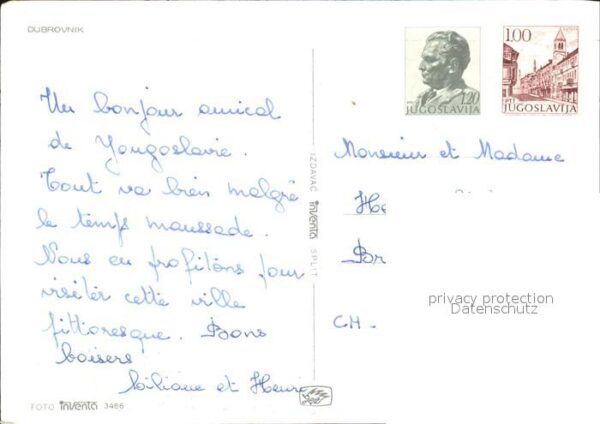 DUBROVNIK
1.20
JUGOSLAVIJA
1.00
JUGOSLAVIJA
Un bonjour amical
de Yougoslavie.
Tout va bien malgré
le temps maussade.
Nous en profitons pour
visiter cette ville
pittoresque. Bons
baisers
Liliane et Henri
IZDAVAC inventa SPLIT
Monsieur et Madame
He
Br
CH.
privacy protection
Datenschutz
FOTO inventa 3466